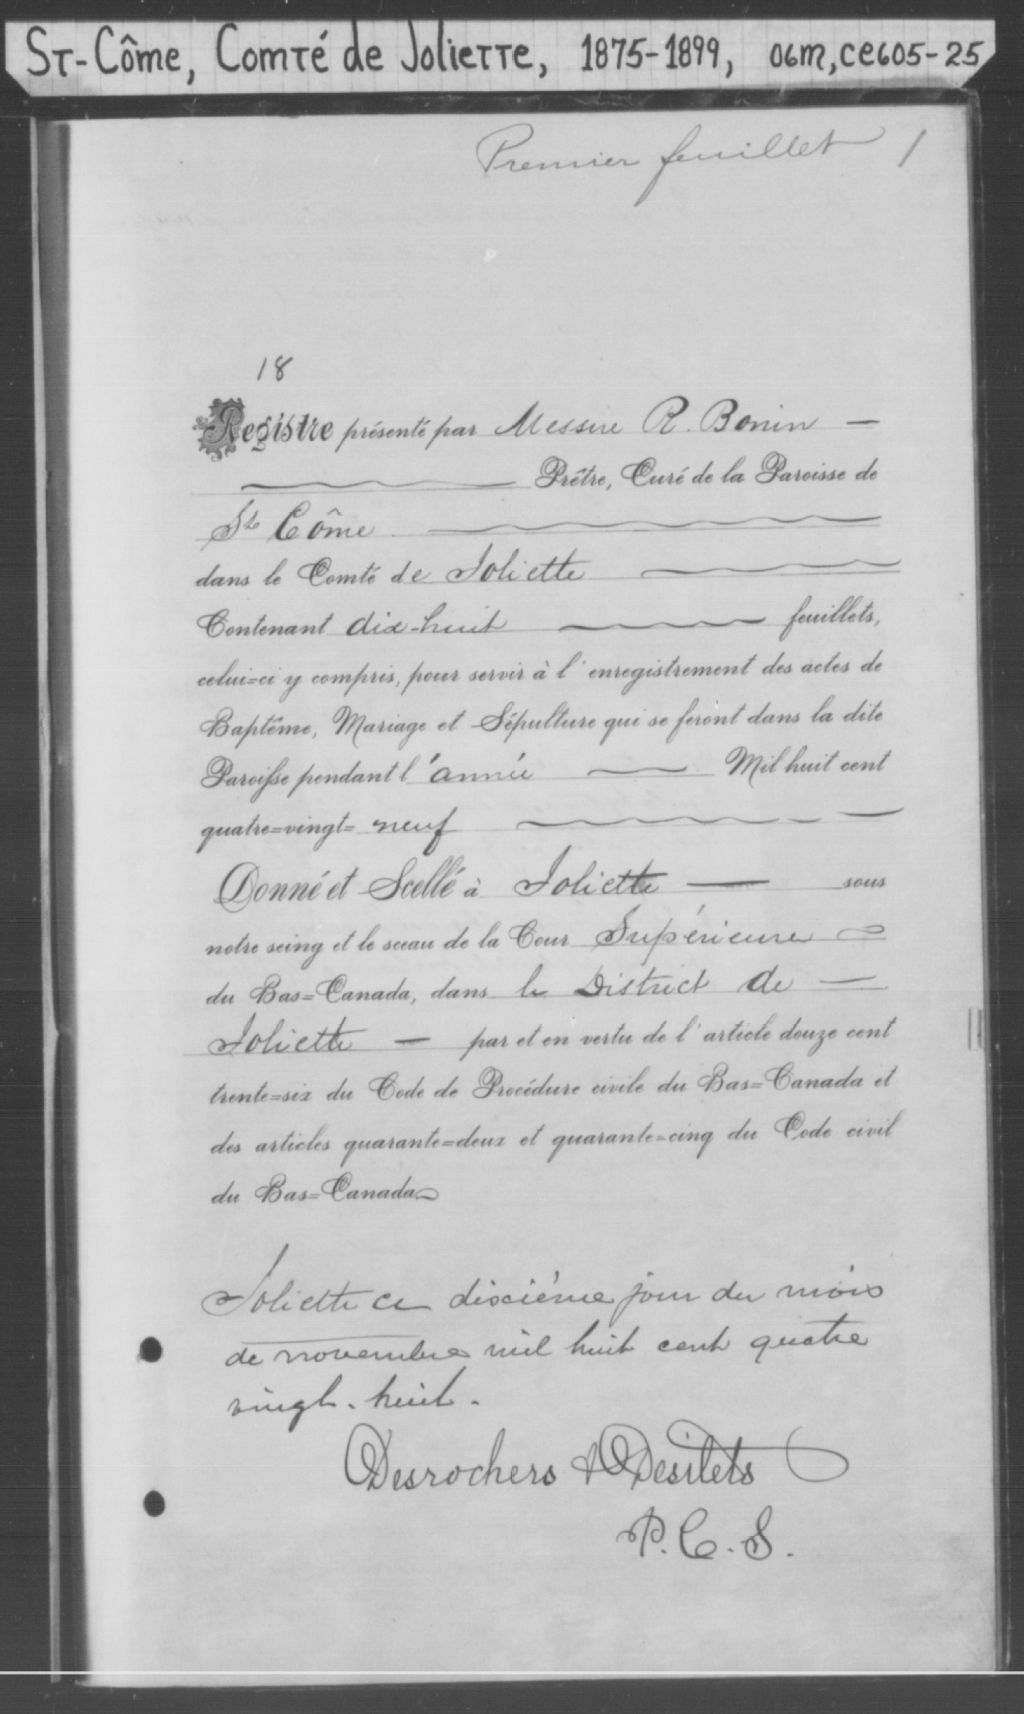 St-Côme, Comté de Joliette, 1875-1899, 06M,CE605-25
Premier feuillet 1
18
Registre présenté par Messire R. Bonin —
Prêtre, Curé de la Paroisse de
St Côme
dans le Comté de Joliette
Contenant dix-huit feuillets,
celui=ci y compris, pour servir à l'enregistrement des actes de
Baptême, Mariage et Sépulture qui se feront dans la dite
Paroisse pendant l'année — Mil huit cent
quatre=vingt= neuf
Donné et Scellé à Joliette — sous
notre seing et le sceau de la Cour Supérieure
du Bas=Canada, dans le District de —
Joliette — par et en vertu de l'article douze cent
trente=six du Code de Procédure civile du Bas=Canada et
des articles quarante=deux et quarante=cinq du Code civil
du Bas=Canada
Joliette ce dixième jour du mois
de novembre mil huit cent quatre
vingt-huit.
Desrochers & Desilets
P.C.S.